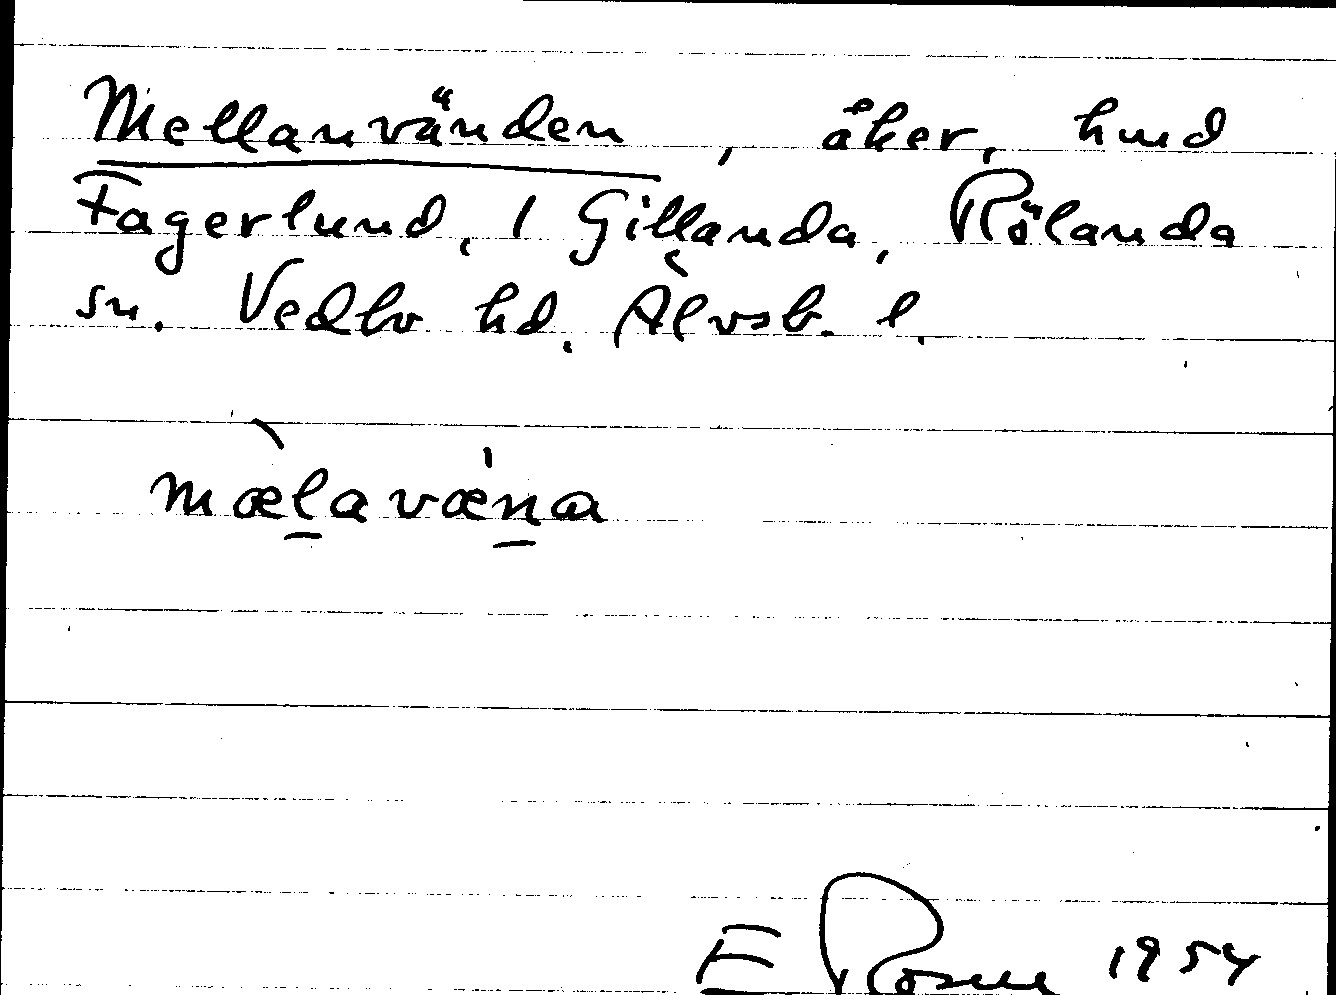 Mellanvänden, åker, hmd
Fagerlund, 1 Gillanda, Rölanda
sn. Vedbo hd. Älvsb. l.
mæ̀lavæ̍na
E Rosell 1954